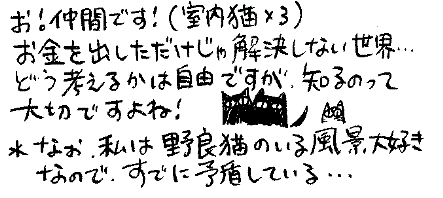 お！仲間です！（室内猫×3）
お金を出しただけじゃ解決しない世界…
どう考えるかは自由ですが、知るのって
大切ですよね！
＊なお、私は野良猫のいる風景大好き
なので、すでに矛盾している…